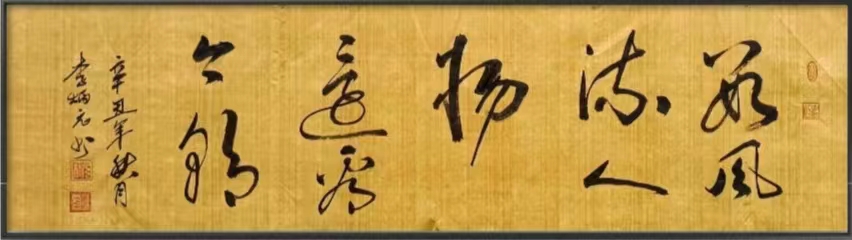 數風
流人
物
還看
今朝
辛丑年秋月
李炳元书